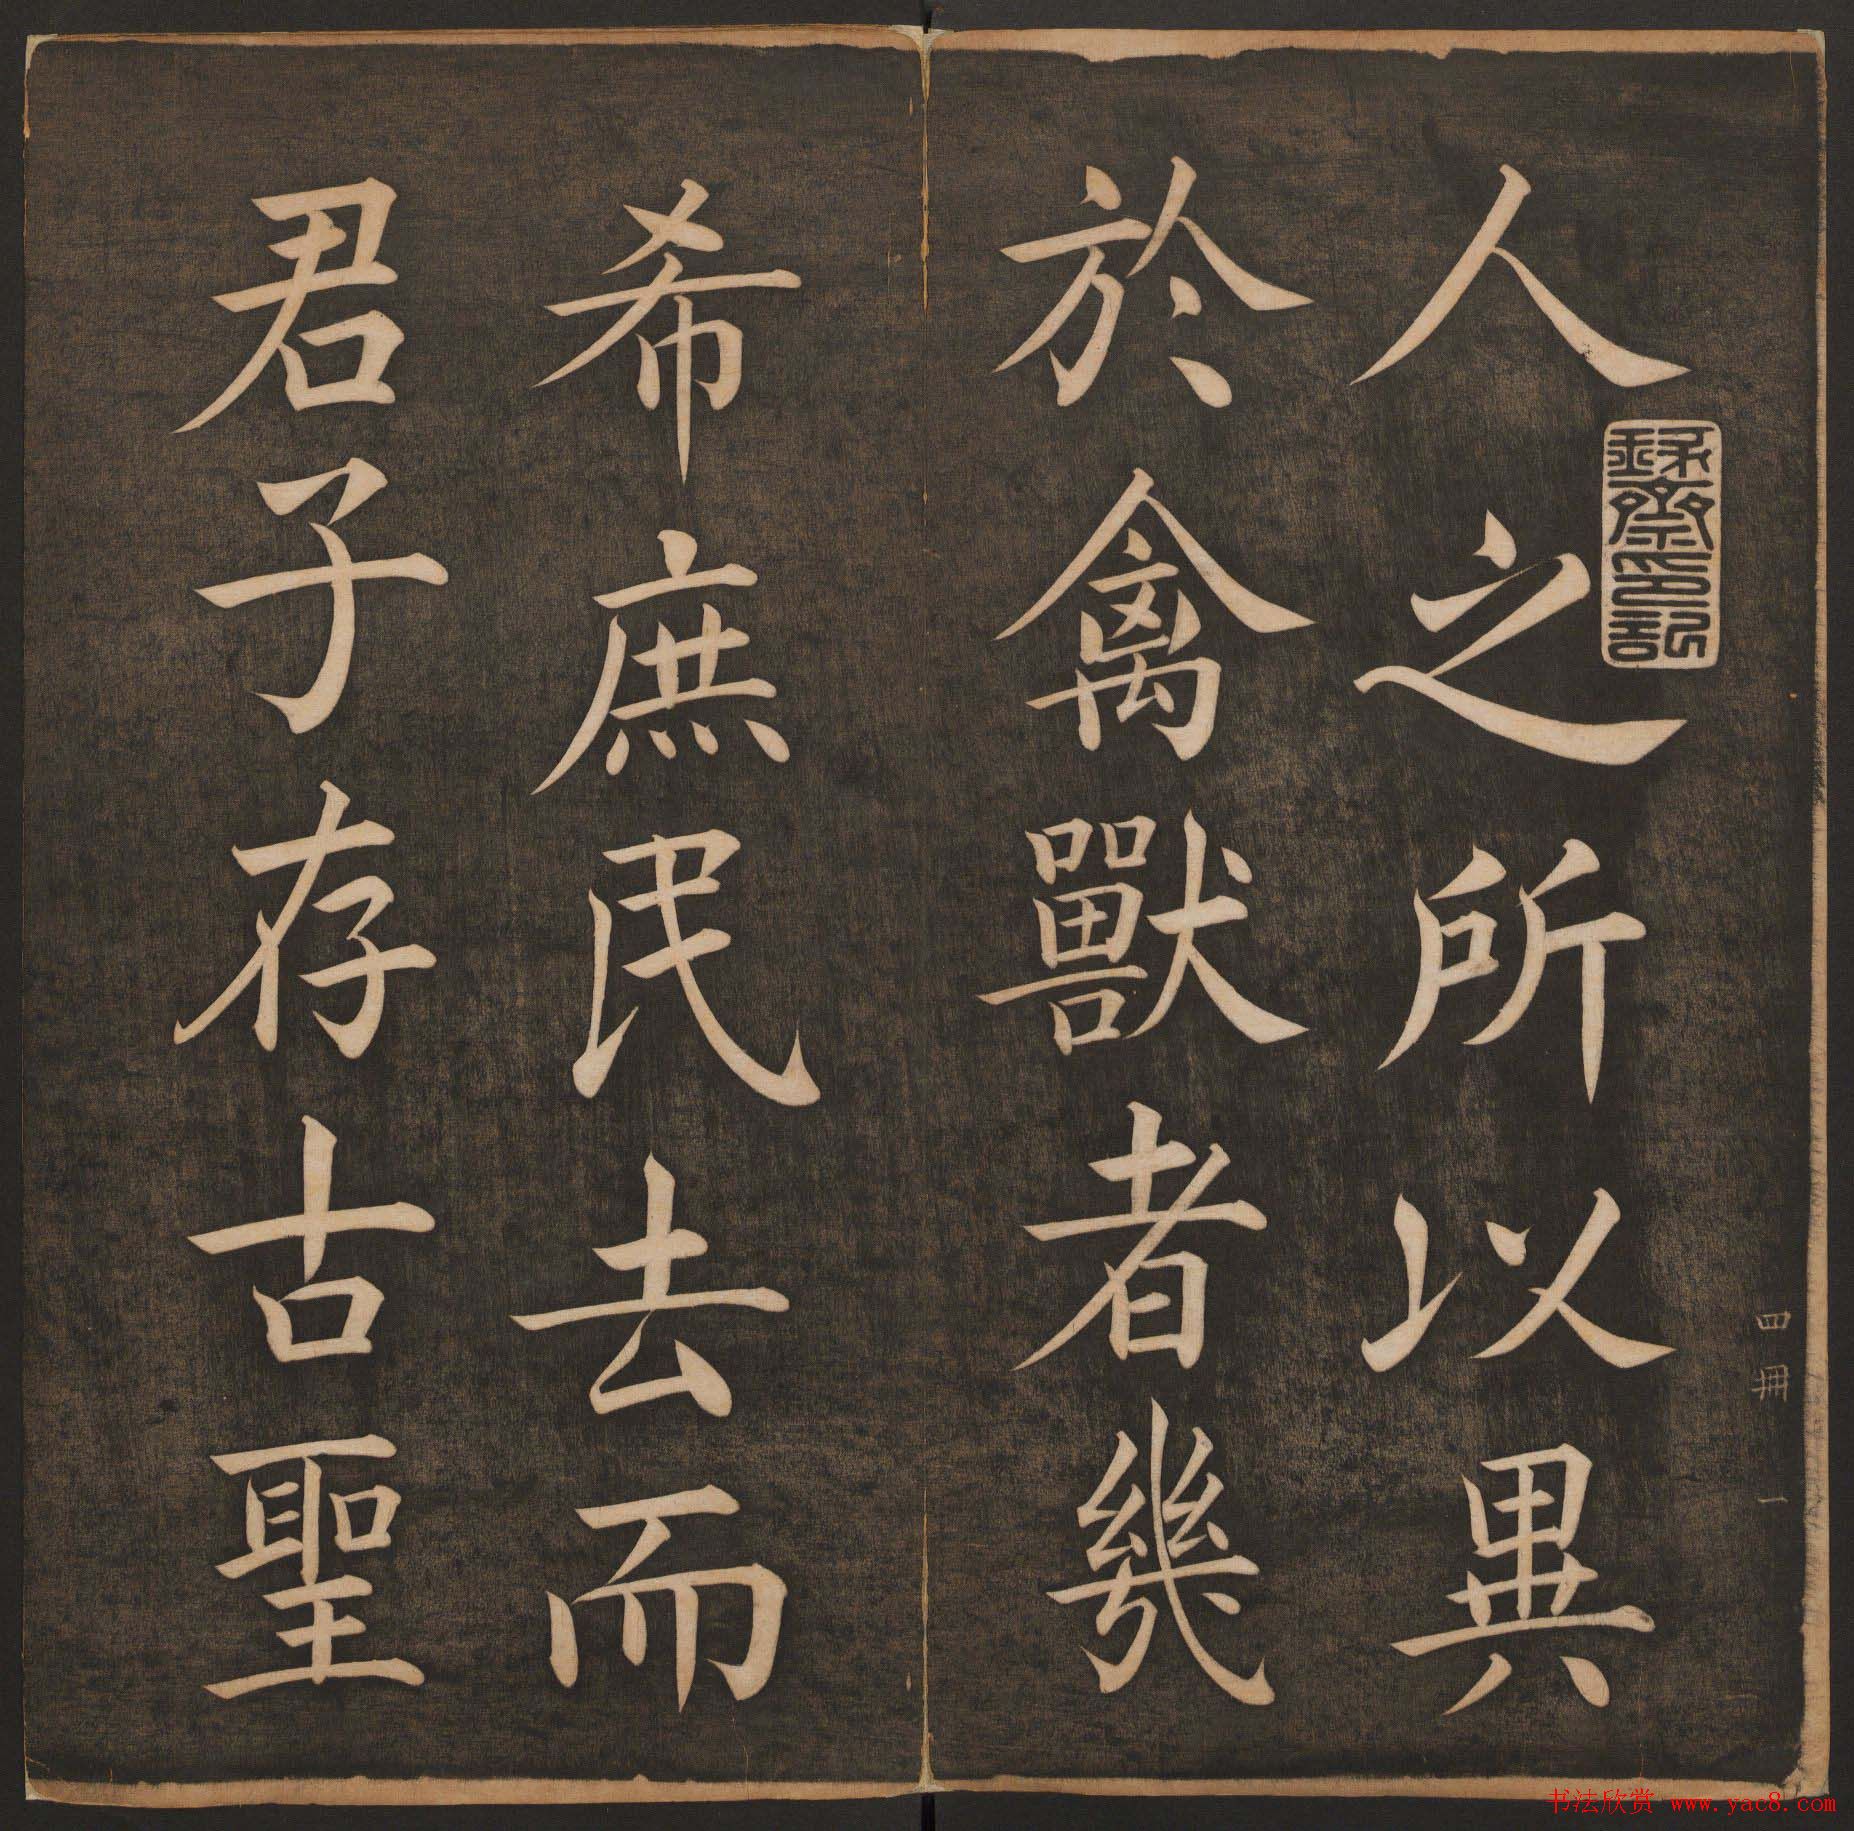 人之所以異
於禽獸者幾
希庶民去而
君子存古聖
四冊 一
书法欣赏 www.yac8.com